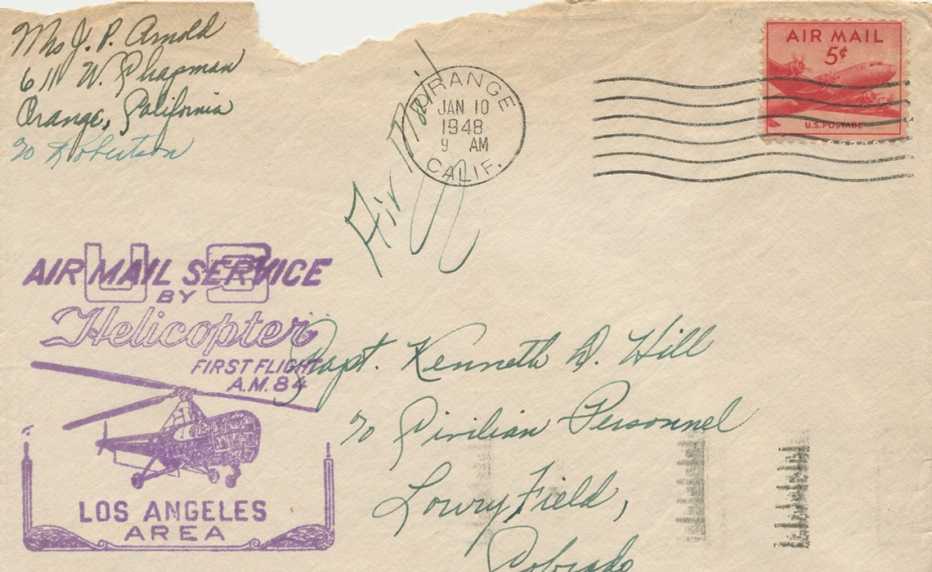 Mrs J. P. Arnold
611 W. Chapman
Orange, California
c/o Robertson
Air Mail
ORANGE
JAN 10
1948
9 AM
CALIF.
AIR MAIL
5¢
U.S. POSTAGE
U S
AIR MAIL SERVICE
BY
Helicopter
FIRST FLIGHT
A.M. 84
LOS ANGELES
AREA
Capt. Kenneth D. Hill
c/o Civilian Personnel
Lowry Field,
Colorado